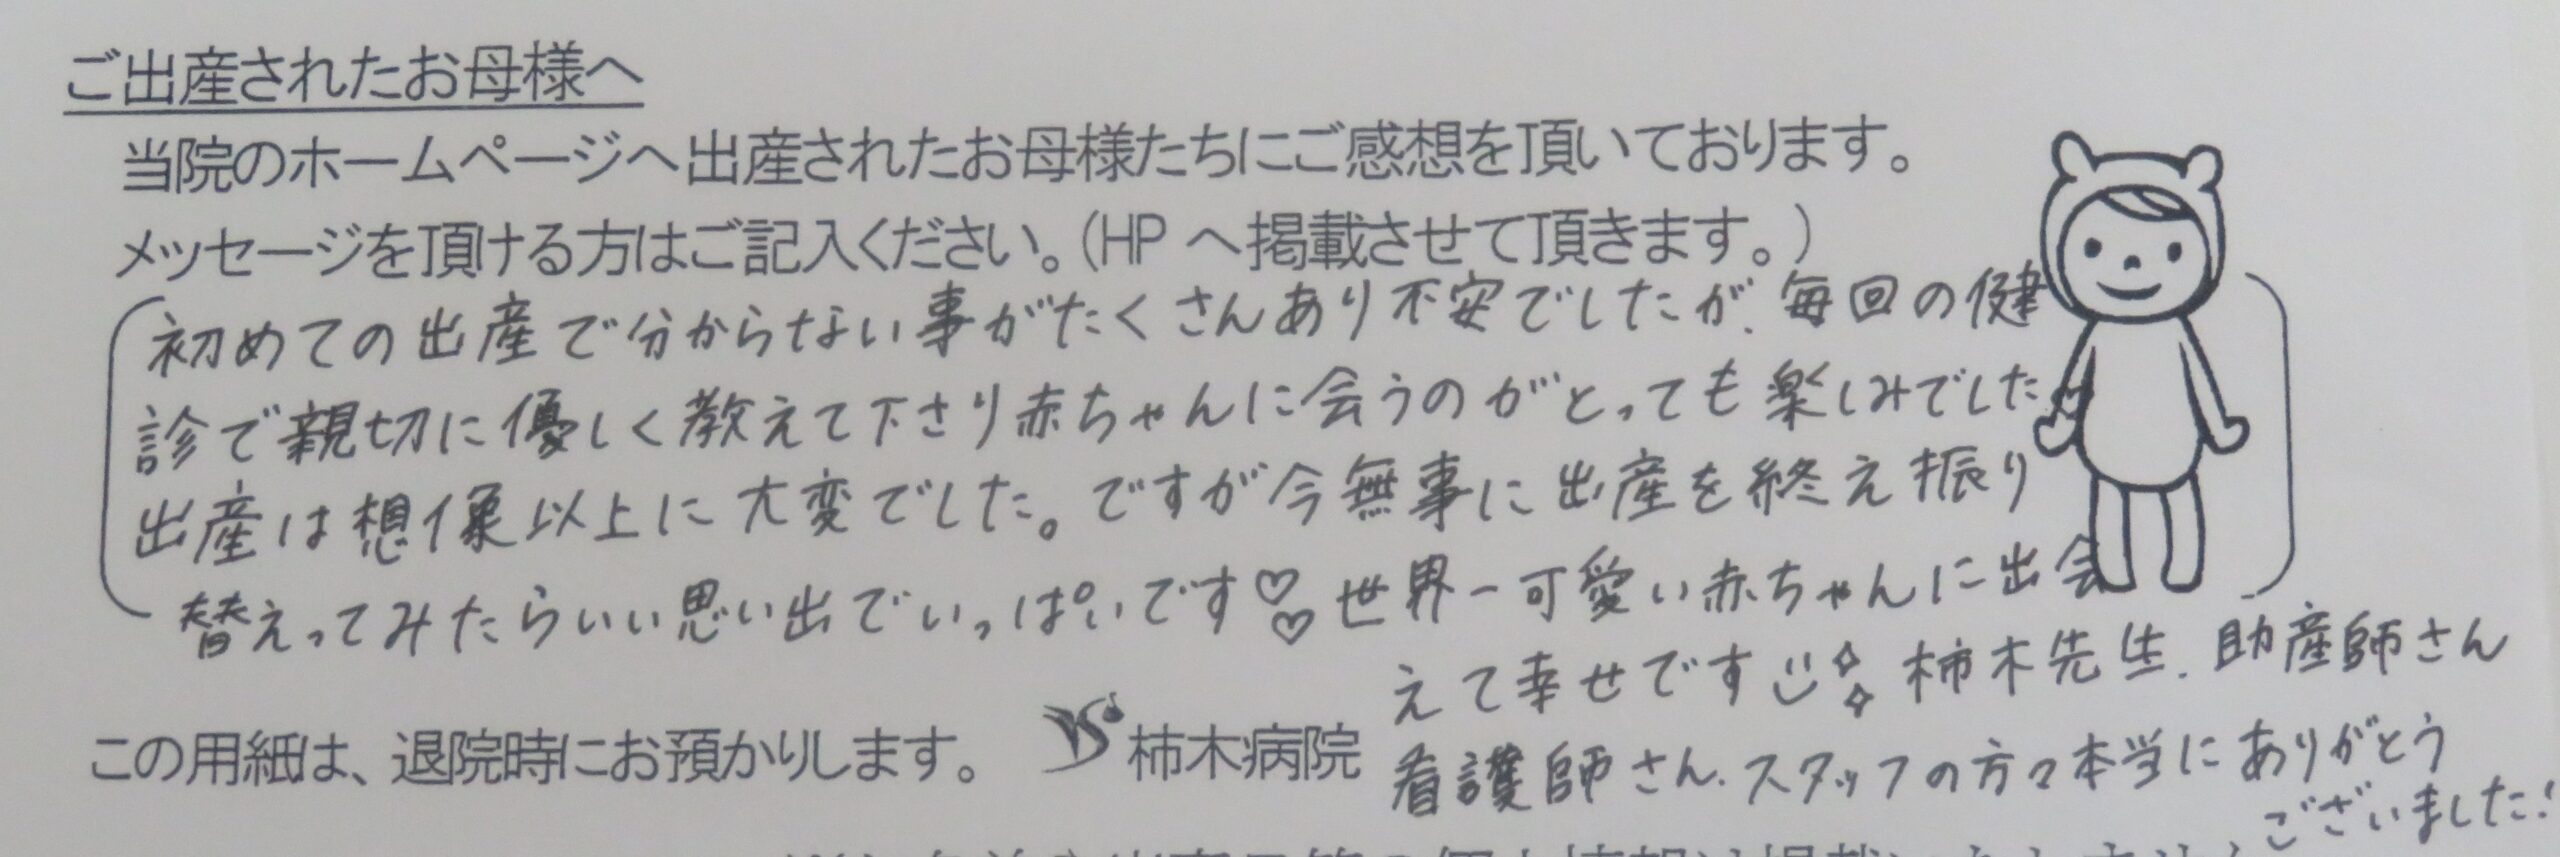 ご出産されたお母様へ
当院のホームページへ出産されたお母様たちにご感想を頂いております。
メッセージを頂ける方はご記入ください。(HP へ掲載させて頂きます。)
初めての出産で分からない事がたくさんあり不安でしたが、毎回の健
診で親切に優しく教えて下さり赤ちゃんに会うのがとっても楽しみでした
出産は想像以上に大変でした。ですが今無事に出産を終え振り
替えってみたらいい思い出でいっぱいです♡♡世界一可愛い赤ちゃんに出会
えて幸せです 柿木先生、助産師さん
看護師さん、スタッフの方々本当にありがとう
ございました!
この用紙は、退院時にお預かりします。 柿木病院